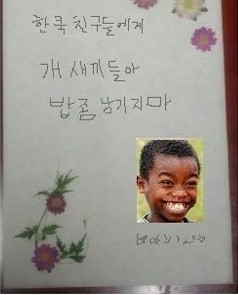 한쿡 친구들에게
개새끼들아
밥좀 남기지마